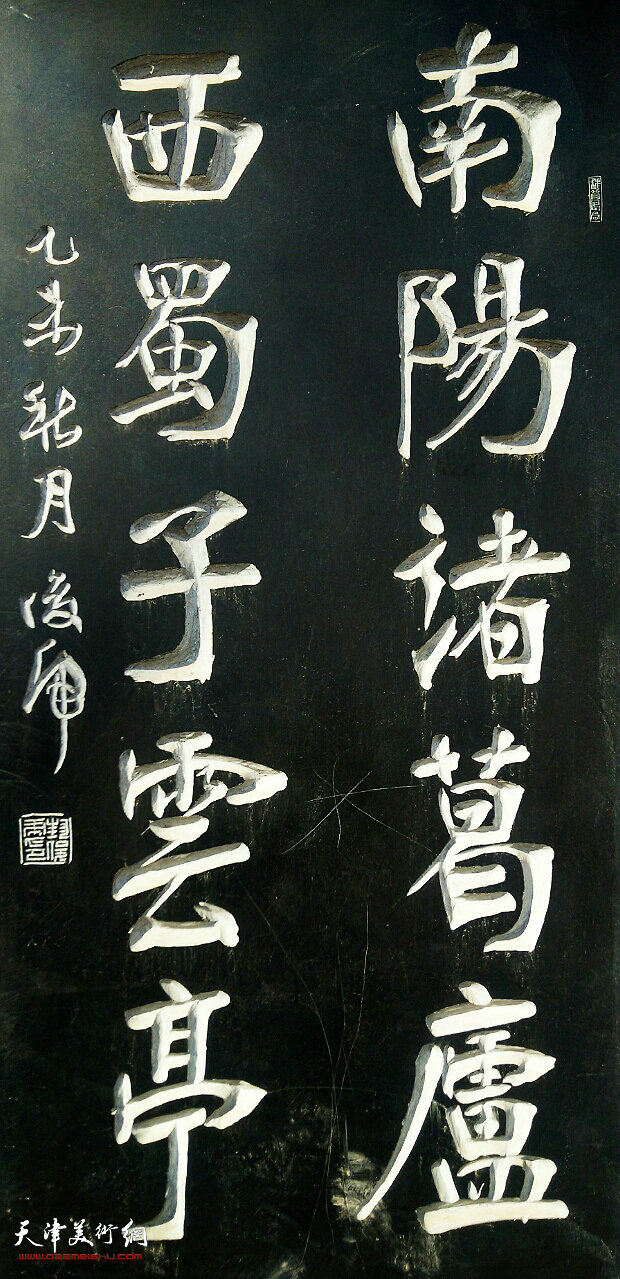 南陽諸葛廬
西蜀子雲亭
乙未秋月
天津美術網
www.022meishu.com